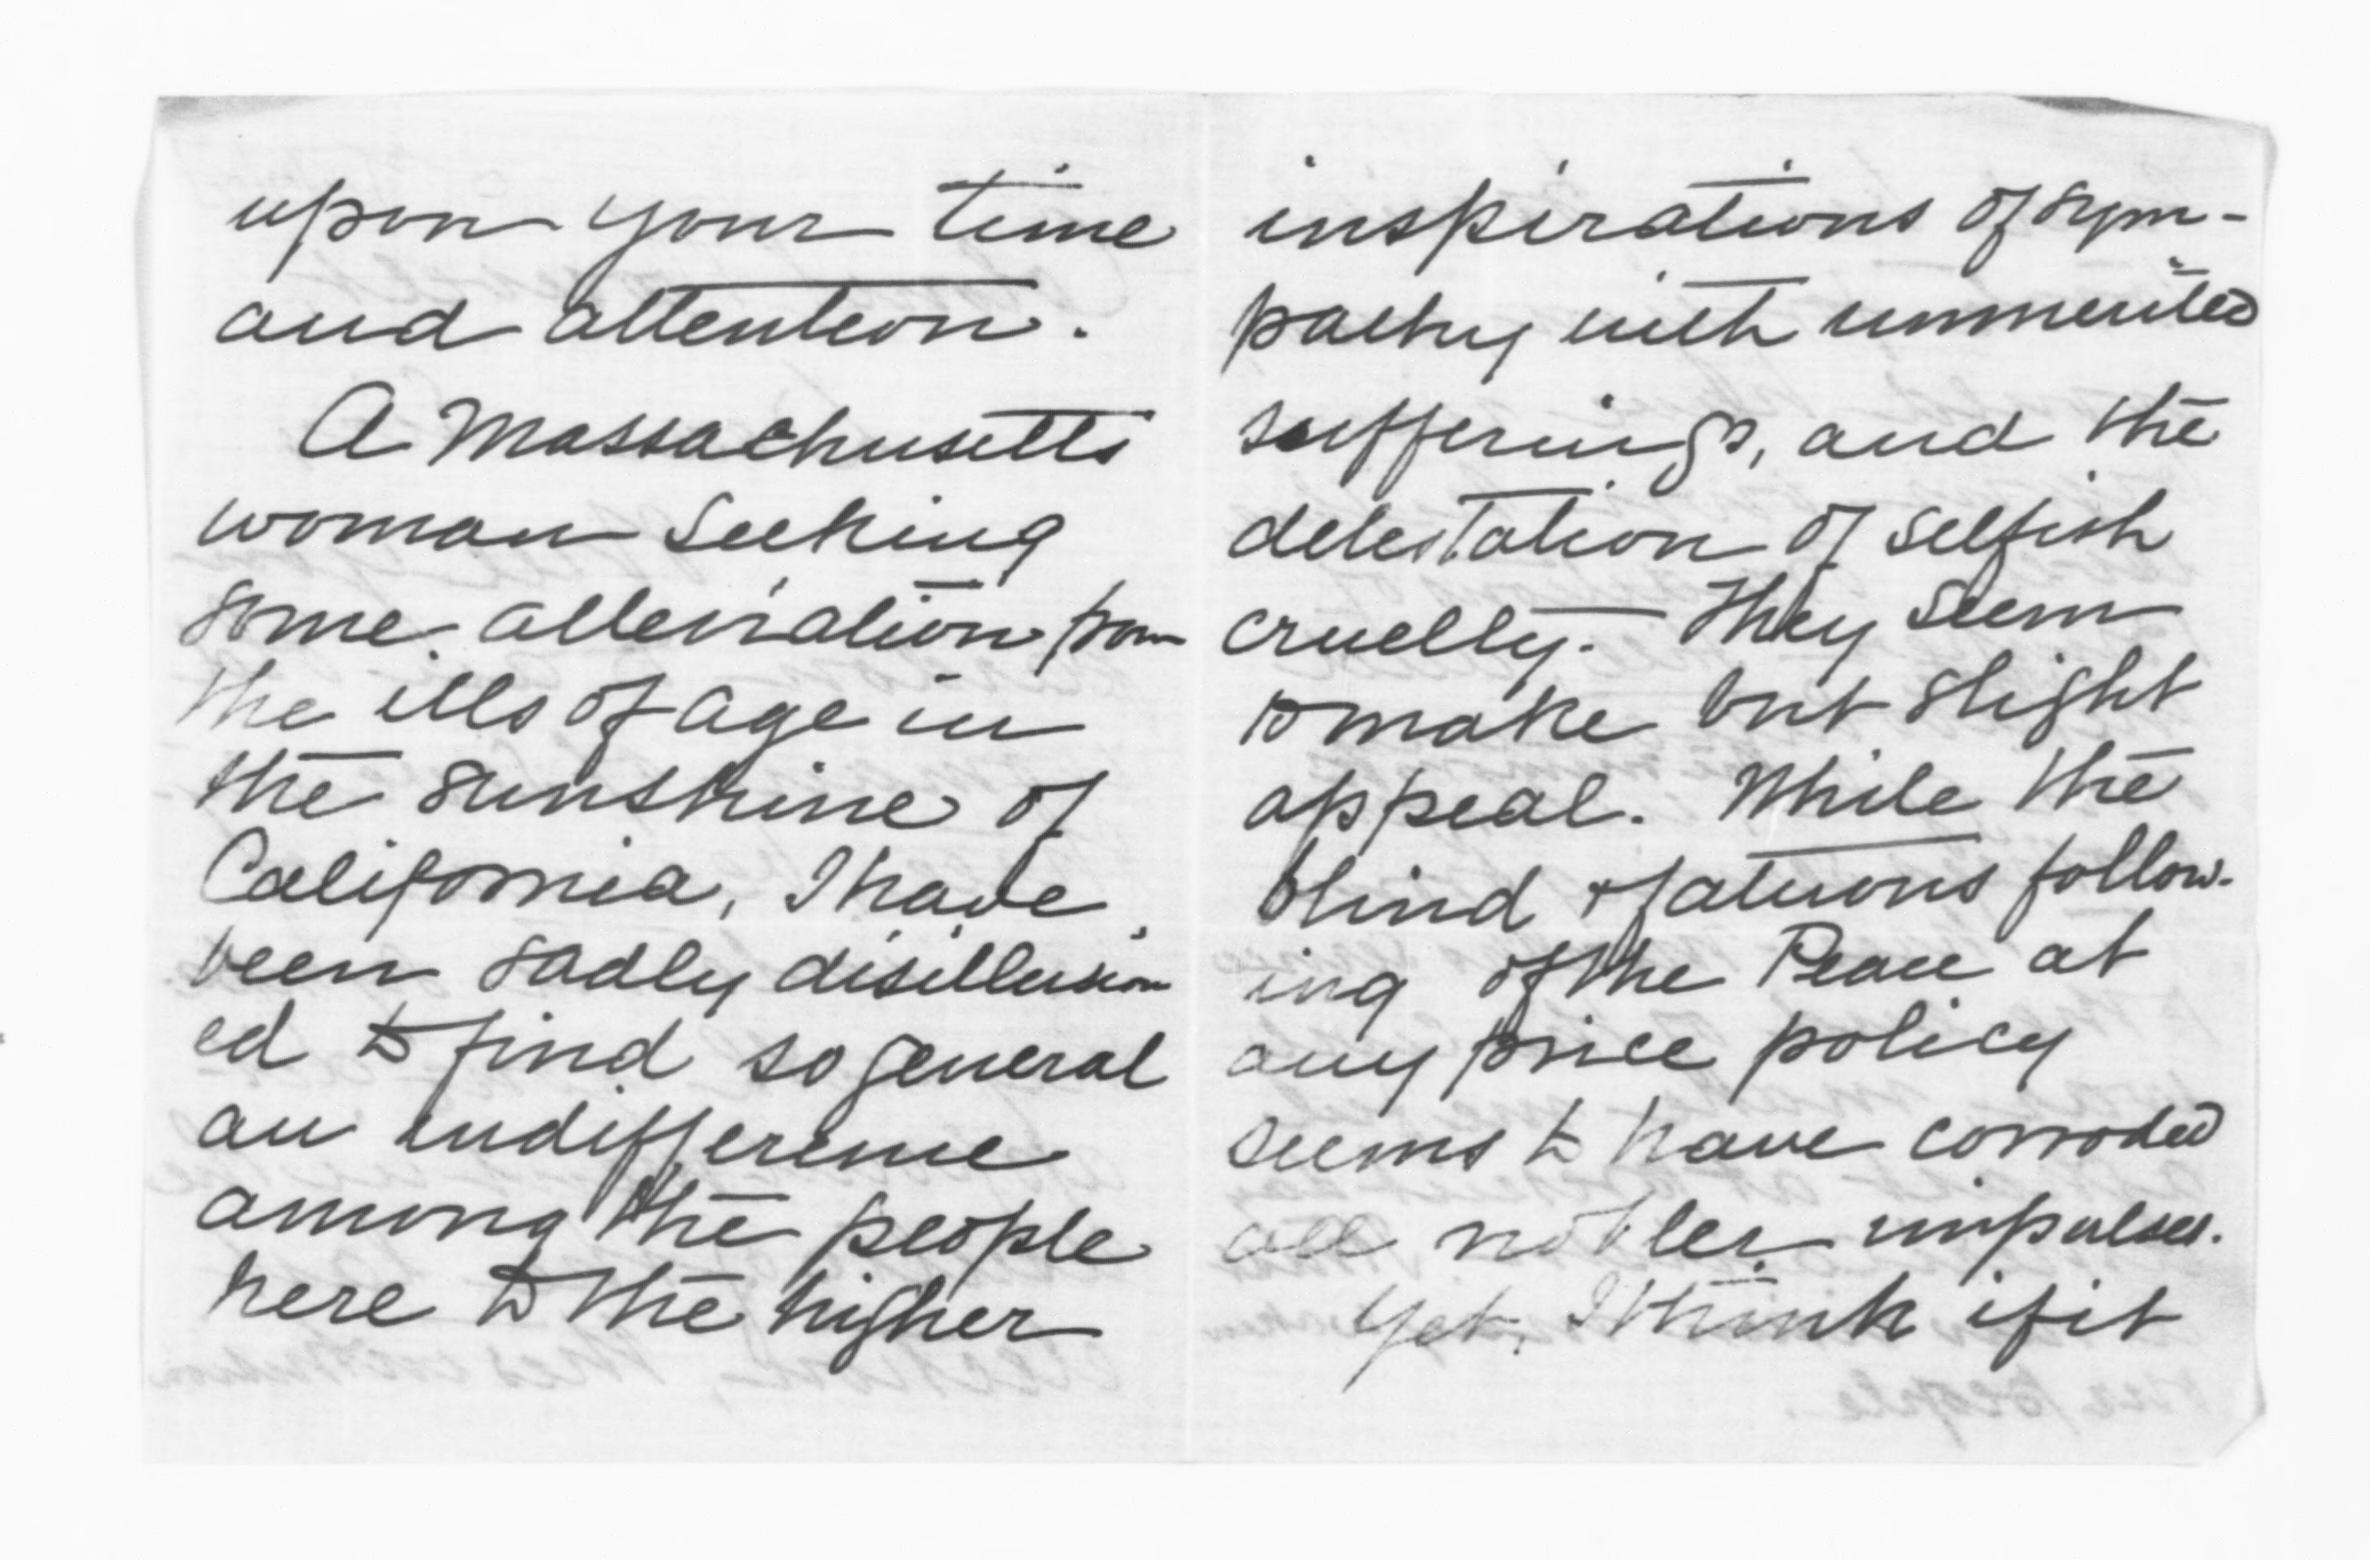 upon your time
and attention.
A Massachusetts
woman seeking
some alleviation from
the ills of age in
the sunshine of
California, I have
been sadly disillusion
ed to find so general
an indifference
among the people
here to the higher
inspirations of sym-
pathy with unmerited
sufferings, and the
detestation of selfish
cruelty. They seem
to make but slight
appeal. While the
blind & fatuous follow-
ing of the Peace at
any price policy
seems to have corroded
all nobler impulses.
Yet, I think if it